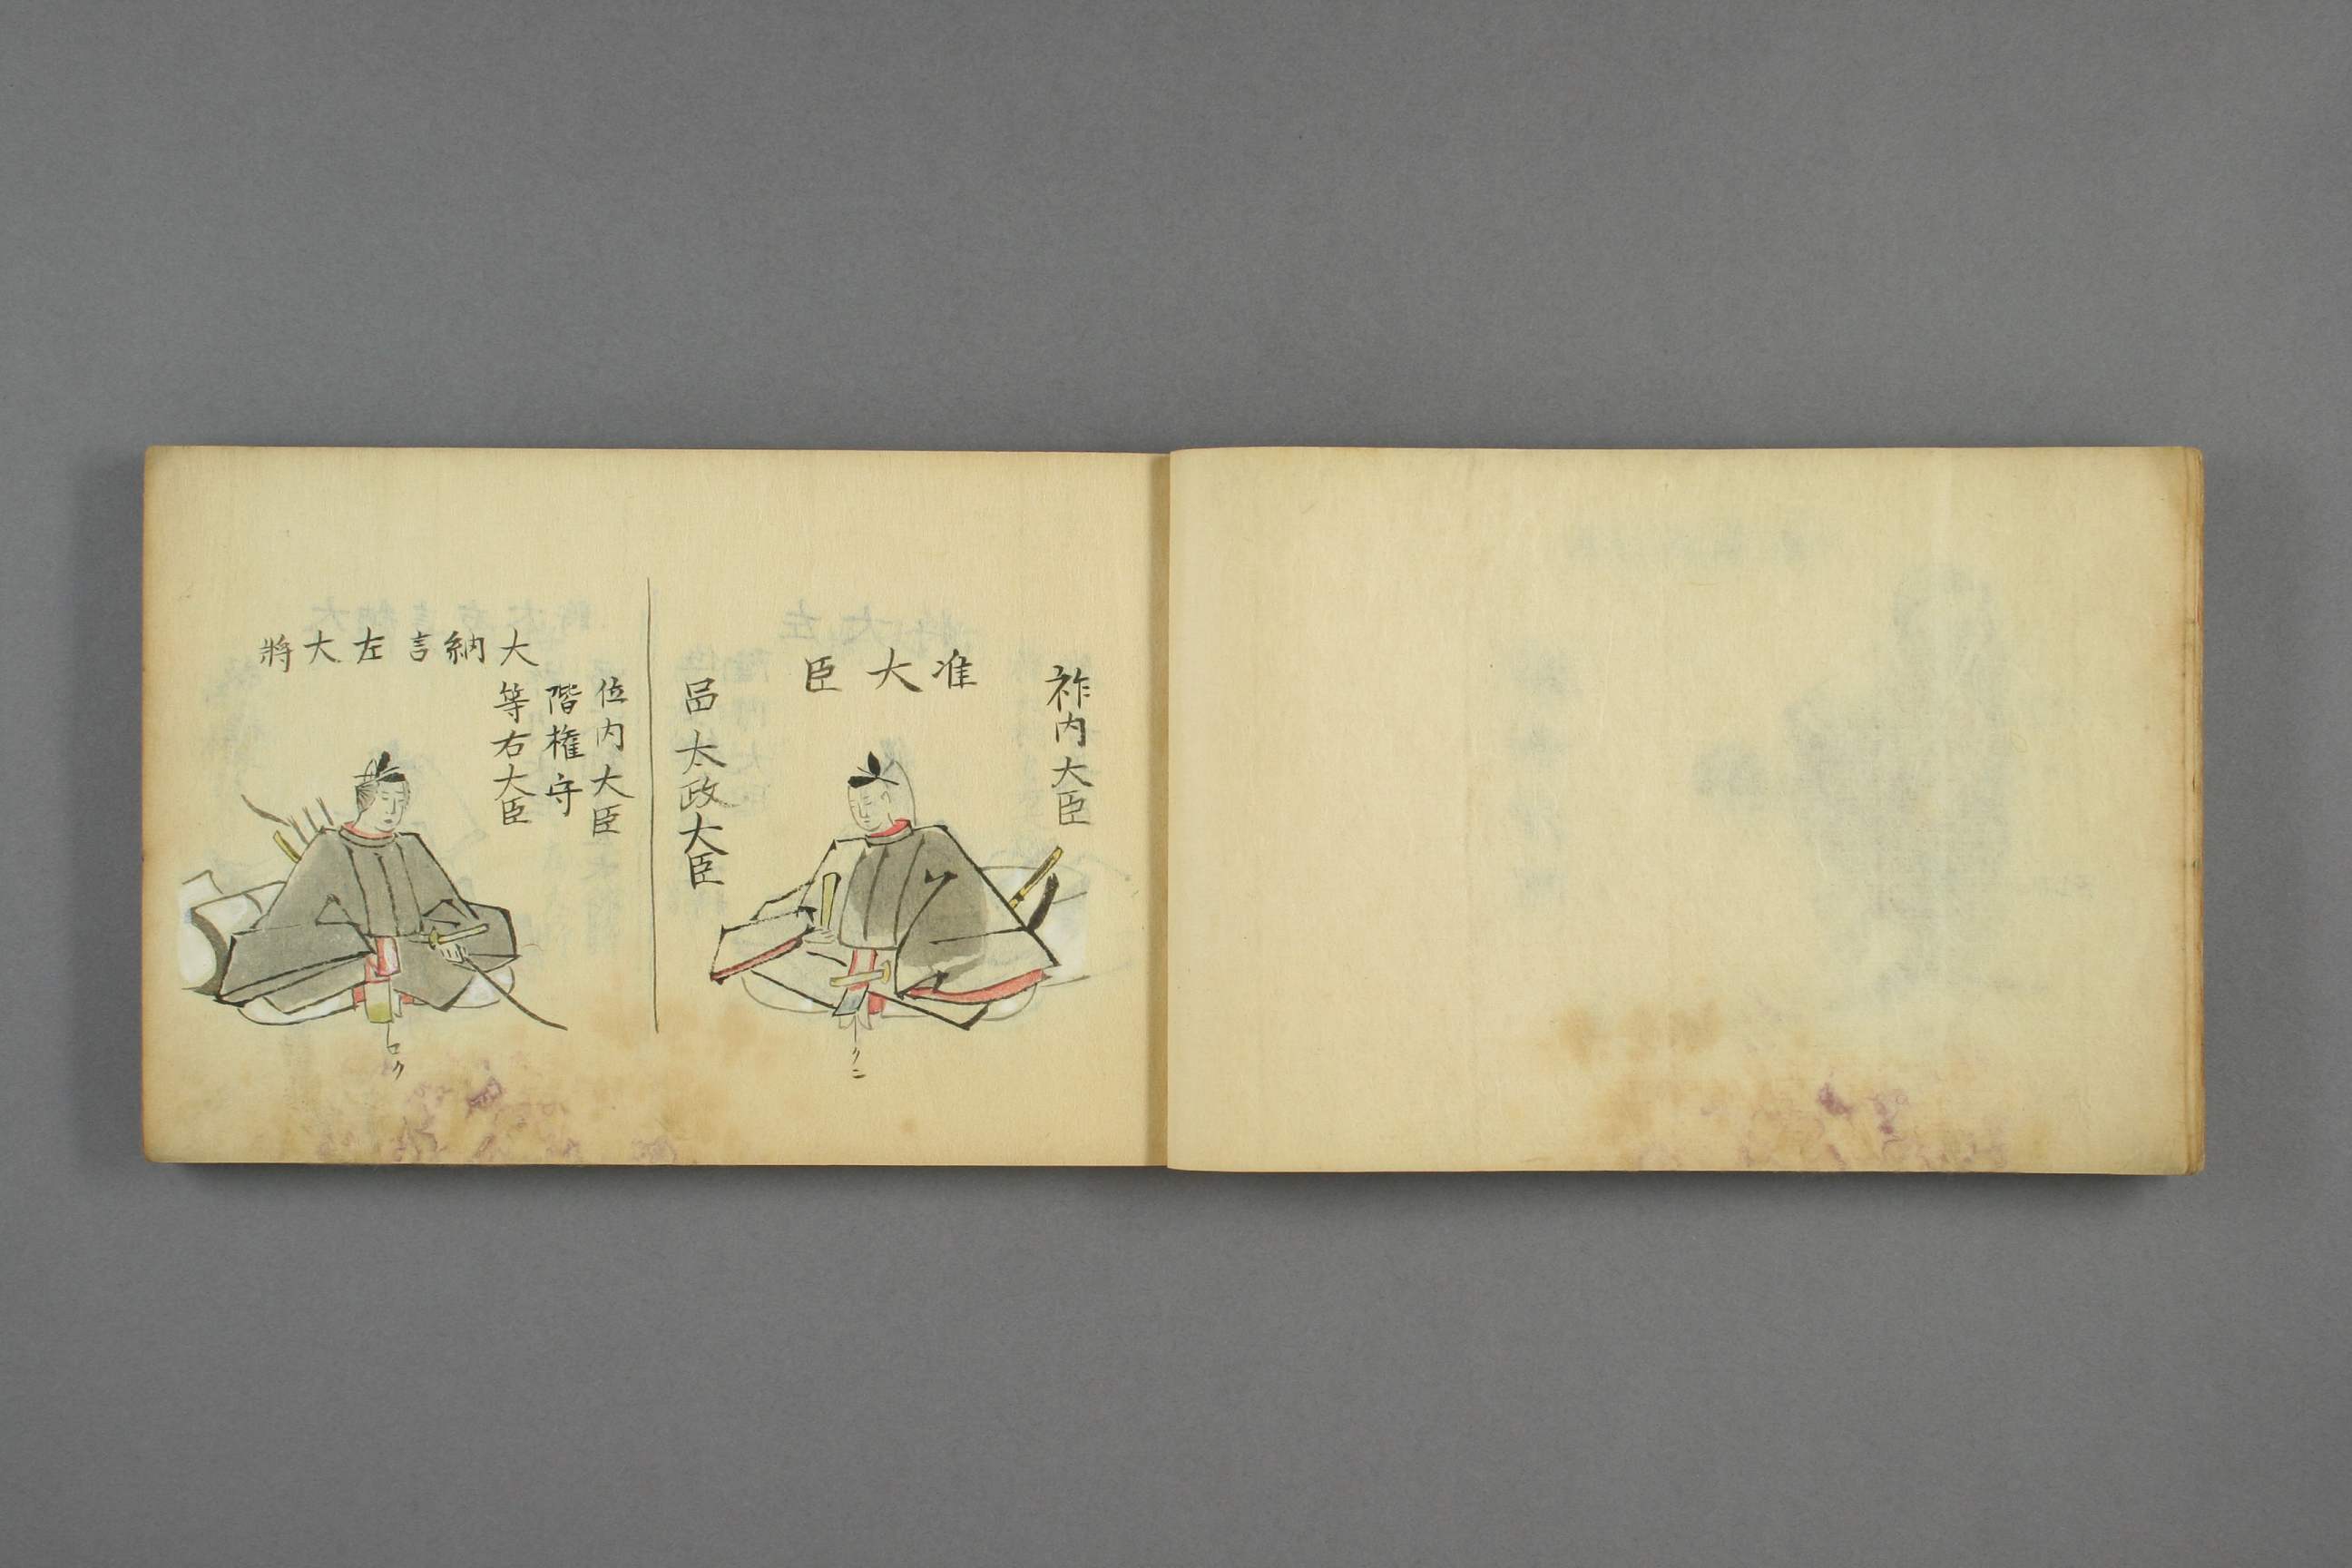 祚内大臣
准大臣
品太政大臣
クニ
位内大臣
階権守
等右大臣
大納言左大將
セク